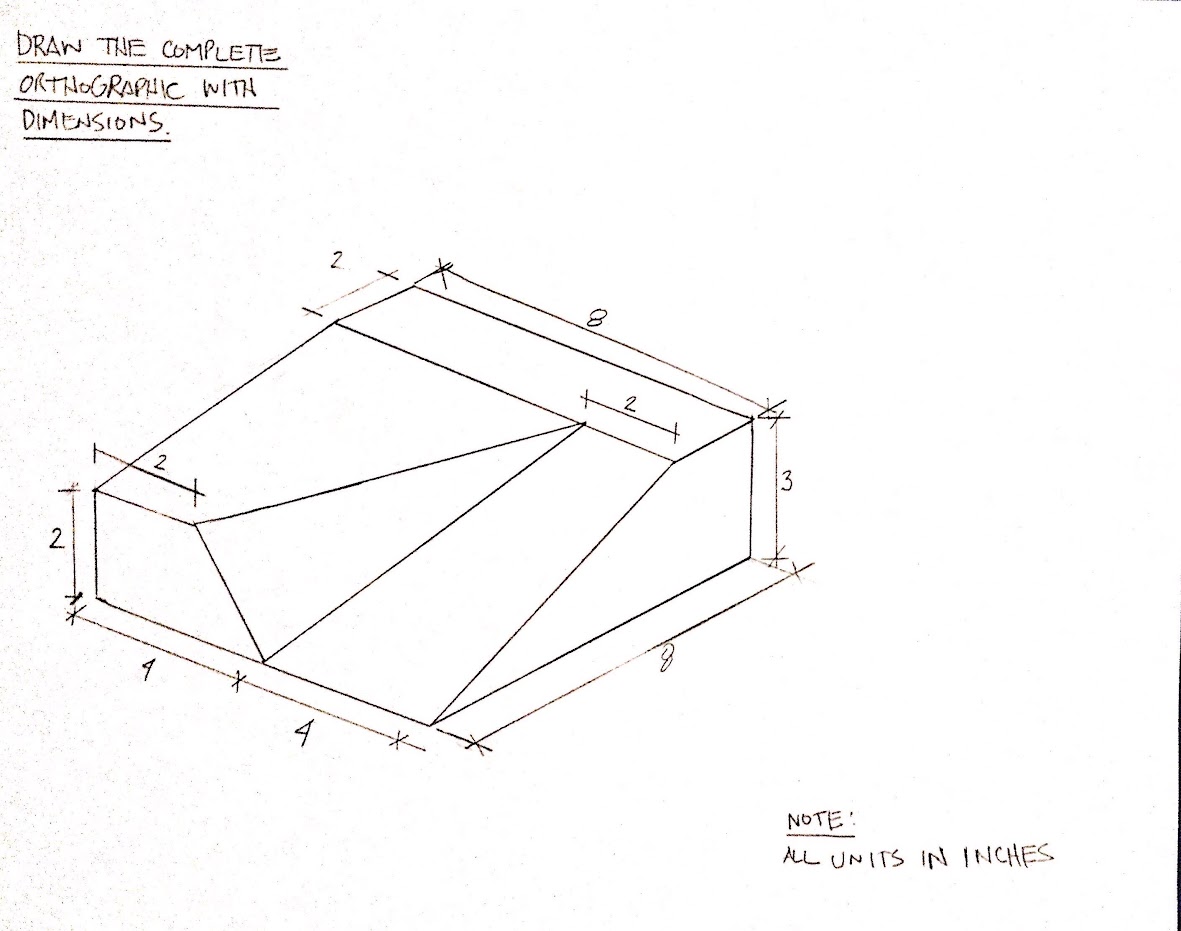 DRAW THE COMPLETE
ORTHOGRAPHIC WITH
DIMENSIONS.
2
8
2
2
3
2
8
4
4
NOTE:
ALL UNITS IN INCHES